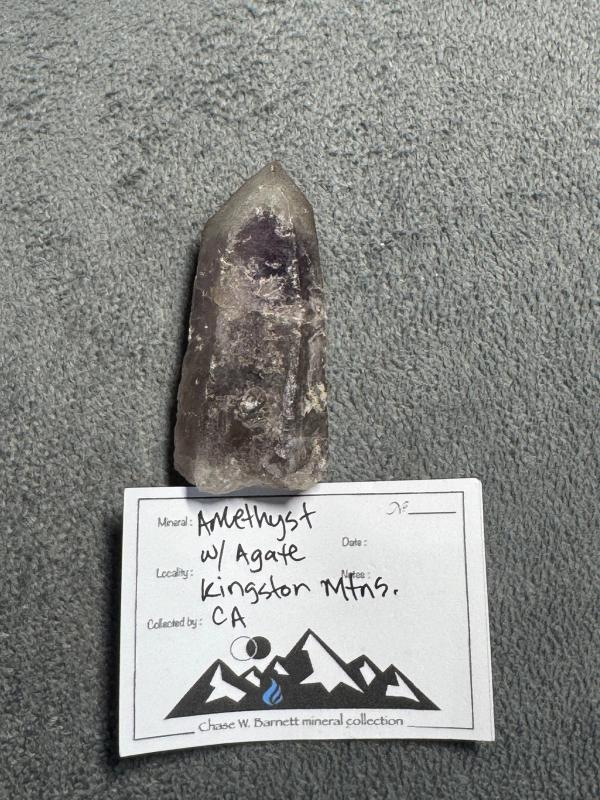 Mineral: Amethyst № ____
w/ Agate Date:
Locality: Kingston Mtns. Notes:
Collected by: CA
Chase W. Barnett mineral collection